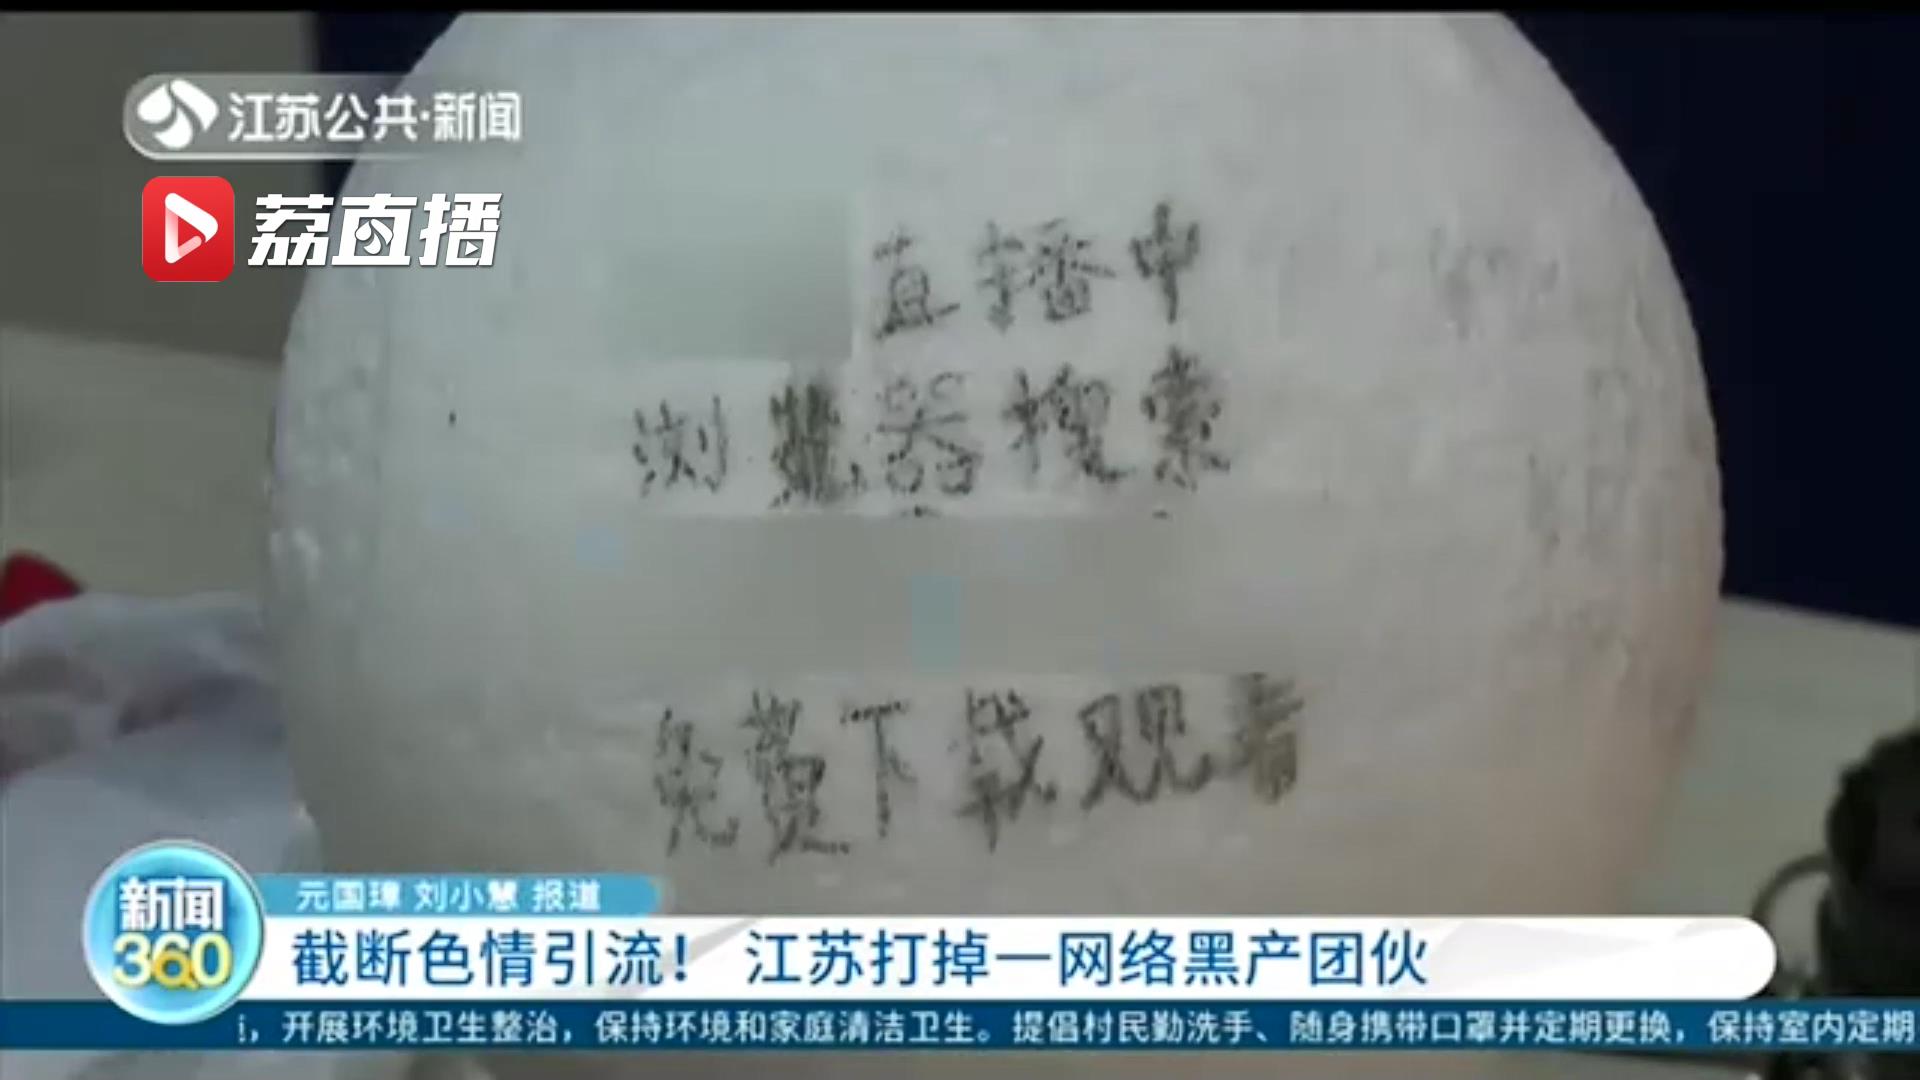 江苏公共·新闻
荔直播
直播中
浏览器搜索
免费下载观看
新闻
360
元国璋 刘小慧 报道
截断色情引流！ 江苏打掉一网络黑产团伙
，开展环境卫生整治，保持环境和家庭清洁卫生。提倡村民勤洗手、随身携带口罩并定期更换，保持室内定期